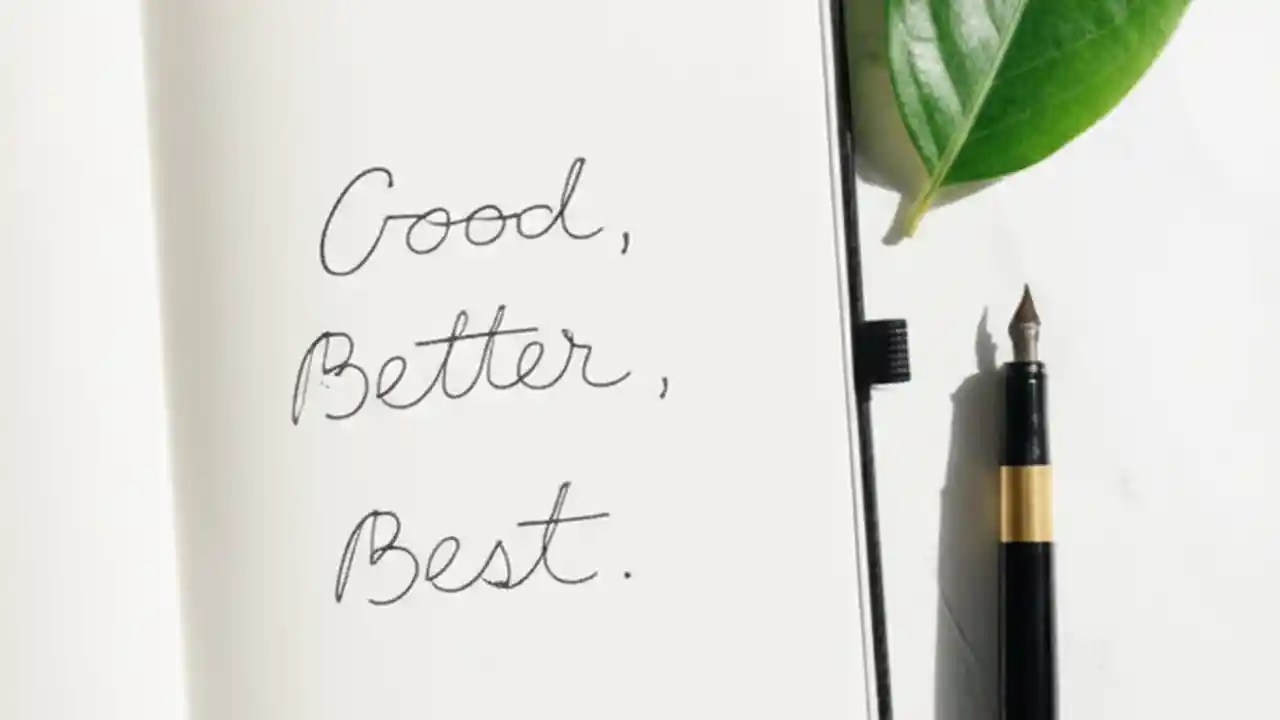 Good,
Better,
Best.